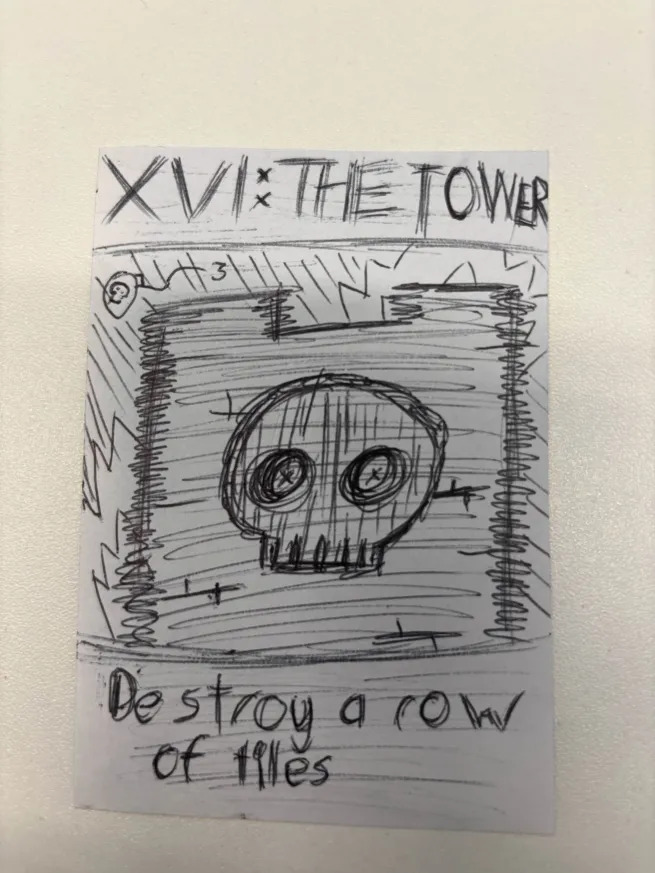 XVI: THE TOWER
3
Destroy a row
of tiles